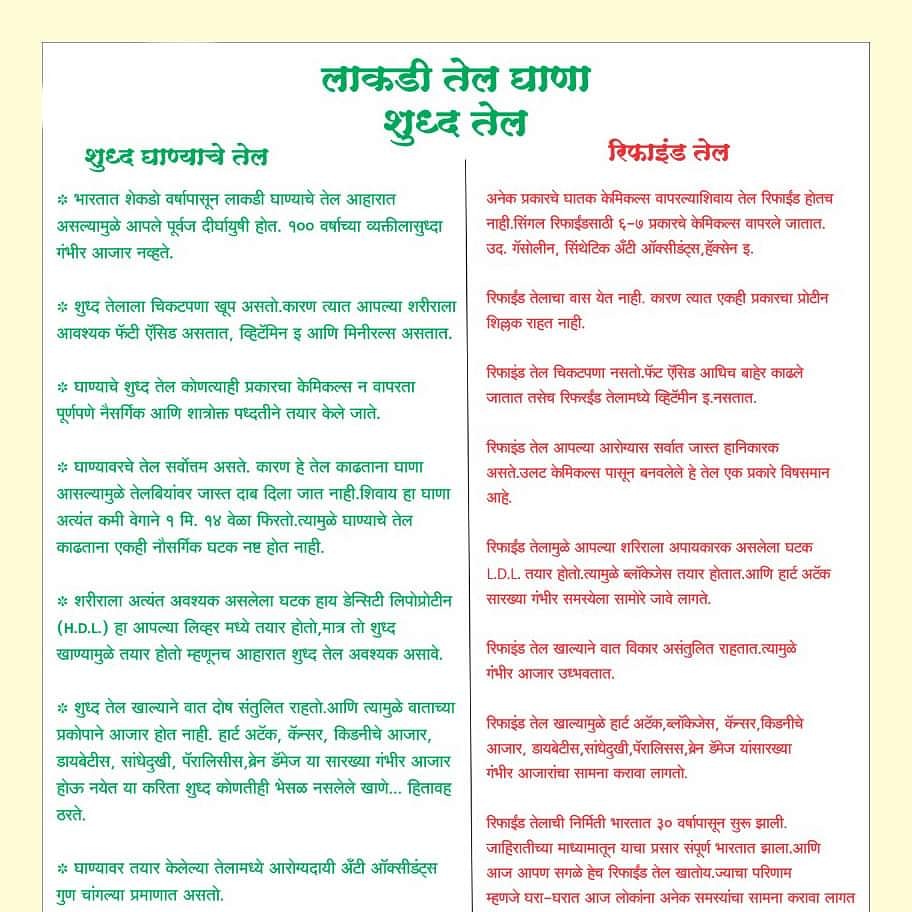 लाकडी तेल घाणा
शुध्द तेल
शुध्द घाण्याचे तेल
❊ भारतात शेकडो वर्षापासून लाकडी घाण्याचे तेल आहारात
असल्यामुळे आपले पूर्वज दीर्घायुषी होत. १०० वर्षाच्या व्यक्तीलासुध्दा
गंभीर आजार नव्हते.
❊ शुध्द तेलाला चिकटपणा खूप असतो.कारण त्यात आपल्या शरीराला
आवश्यक फॅटी ऍसिड असतात, व्हिटॅमिन इ आणि मिनीरल्स असतात.
❊ घाण्याचे शुध्द तेल कोणत्याही प्रकारचा केमिकल्स न वापरता
पूर्णपणे नैसर्गिक आणि शात्रोक्त पध्दतीने तयार केले जाते.
❊ घाण्यावरचे तेल सर्वोत्तम असते. कारण हे तेल काढताना घाणा
आसल्यामुळे तेलबियांवर जास्त दाब दिला जात नाही.शिवाय हा घाणा
अत्यंत कमी वेगाने १ मि. १४ वेळा फिरतो.त्यामुळे घाण्याचे तेल
काढताना एकही नौसर्गिक घटक नष्ट होत नाही.
❊ शरीराला अत्यंत अवश्यक असलेला घटक हाय डेन्सिटी लिपोप्रोटीन
(H.D.L.) हा आपल्या लिव्हर मध्ये तयार होतो,मात्र तो शुध्द
खाण्यामुळे तयार होतो म्हणूनच आहारात शुध्द तेल अवश्यक असावे.
❊ शुध्द तेल खाल्याने वात दोष संतुलित राहतो.आणि त्यामुळे वाताच्या
प्रकोपाने आजार होत नाही. हार्ट अटॅक, कॅन्सर, किडनीचे आजार,
डायबेटीस, सांधेदुखी, पॅरालिसीस,ब्रेन डॅमेज या सारख्या गंभीर आजार
होऊ नयेत या करिता शुध्द कोणतीही भेसळ नसलेले खाणे... हितावह
ठरते.
❊ घाण्यावर तयार केलेल्या तेलामध्ये आरोग्यदायी अँटी ऑक्सीडंट्स
गुण चांगल्या प्रमाणात असतो.
रिफाइंड तेल
अनेक प्रकारचे घातक केमिकल्स वापरल्याशिवाय तेल रिफाईंड होतच
नाही.सिंगल रिफाईंडसाठी ६-७ प्रकारचे केमिकल्स वापरले जातात.
उद. गॅसोलीन, सिंथेटिक अँटी ऑक्सीडंट्स,हॅक्सेन इ.
रिफाईंड तेलाचा वास येत नाही. कारण त्यात एकही प्रकारचा प्रोटीन
शिल्लक राहत नाही.
रिफाइंड तेल चिकटपणा नसतो.फॅट ऍसिड आधिच बाहेर काढले
जातात तसेच रिफरईंड तेलामध्ये व्हिटॅमीन इ.नसतात.
रिफाइंड तेल आपल्या आरोग्यास सर्वात जास्त हानिकारक
असते.उलट केमिकल्स पासून बनवलेले हे तेल एक प्रकारे विषसमान
आहे.
रिफाईंड तेलामुळे आपल्या शरिराला अपायकारक असलेला घटक
L.D.L. तयार होतो.त्यामुळे ब्लॉकेजेस तयार होतात.आणि हार्ट अटॅक
सारख्या गंभीर समस्येला सामोरे जावे लागते.
रिफाइंड तेल खाल्याने वात विकार असंतुलित राहतात.त्यामुळे
गंभीर आजार उध्भवतात.
रिफाइंड तेल खाल्यामुळे हार्ट अटॅक,ब्लॉकेजेस, कॅन्सर,किडनीचे
आजार, डायबेटीस,सांधेदुखी,पॅरालिसस,ब्रेन डॅमेज यांसारख्या
गंभीर आजारांचा सामना करावा लागतो.
रिफाईंड तेलाची निर्मिती भारतात ३० वर्षापासून सुरू झाली.
जाहिरातीच्या माध्यामातून याचा प्रसार संपूर्ण भारतात झाला.आणि
आज आपण सगळे हेच रिफाईंड तेल खातोय.ज्याचा परिणाम
म्हणजे घरा-घरात आज लोकांना अनेक समस्यांचा सामना करावा लागत